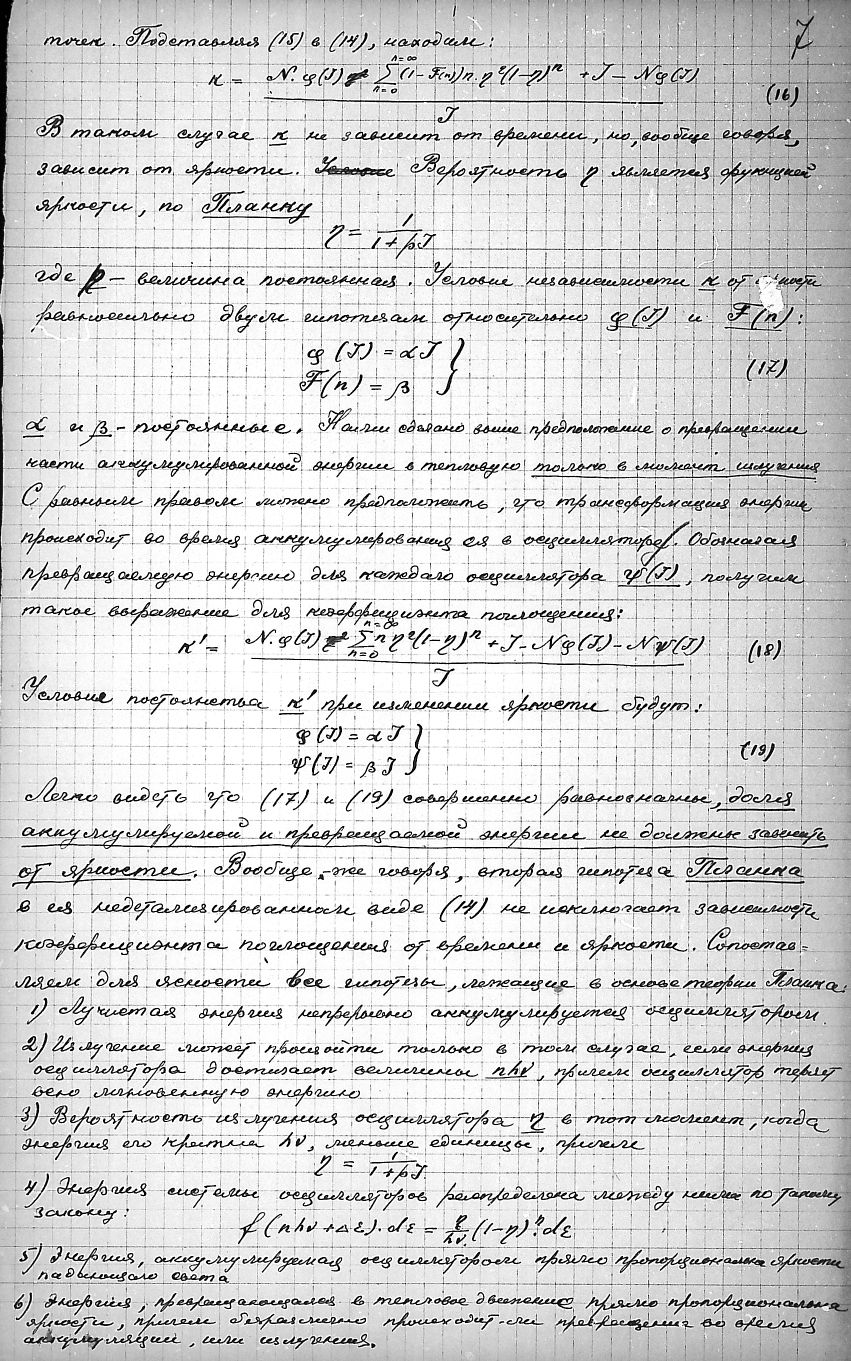 7
точек. Подставляя (15) в (14), находим:
κ = N.φ(J) Σ (1-F(n)) n. η²(1-η)ⁿ + J - Nφ(J)
n=∞
n=0
J
(16)
В таком случае κ не зависит от времени, но, вообще говоря,
зависит от яркости. Вероятность η является функцией
яркости, по Планку
η = 1/(1+pJ)
где p - величина постоянная. Условие независимости κ от яркости
равносильно двум гипотезам относительно φ(J) и F(n):
φ(J) = αJ
F(n) = β } (17)
α и β - постоянные. Нами сделано выше предположение о превращении
части аккумулированной энергии в тепловую только в момент излучения
С равным правом можно предположить, что трансформация энергии
происходит во время аккумулирования ея в осцилляторе. Обозначая
превращаемую энергию для каждаго осциллятора ψ(J), получим
такое выражение для коэффициэнта поглощения:
κ' = N.φ(J) Σ n η²(1-η)ⁿ + J - Nφ(J) - Nψ(J)
n=∞
n=0
J
(18)
Условия постоянства κ' при изменении яркости будут:
φ(J) = αJ
ψ(J) = βJ } (19)
Легко видеть что (17) и (19) совершенно равнозначны, доля
аккумулируемой и превращаемой энергии не должны зависеть
от яркости. Вообще-же говоря, вторая гипотеза Планка
в ея недетализированном виде (14) не исключает зависимости
коэффициэнта поглощения от времени и яркости. Сопостав-
ляем для ясности все гипотезы, лежащие в основе теории Планка:
1) Лучистая энергия непрерывно аккумулируется осциллятором.
2) Излучение может произойти только в том случае, если энергия
осциллятора достигает величины nhν, причем осциллятор теряет
всю мгновенную энергию
3) Вероятность излучения осциллятора η в тот момент, когда
энергия его кратна hν, меньше единицы, причем
η = 1/(1+pJ)
4) Энергия системы осцилляторов распределена между ними по такому
закону:
f(nhν + Δε).dε = η/hν (1-η)ⁿ.dε
5) Энергия, аккумулируемая осциллятором прямо пропорциональна яркости
падающаго света
6) Энергия, превращающаяся в тепловое движение прямо пропорциональна
яркости, причем безразлично происходит-ли превращение во время
аккумуляции, или излучения.